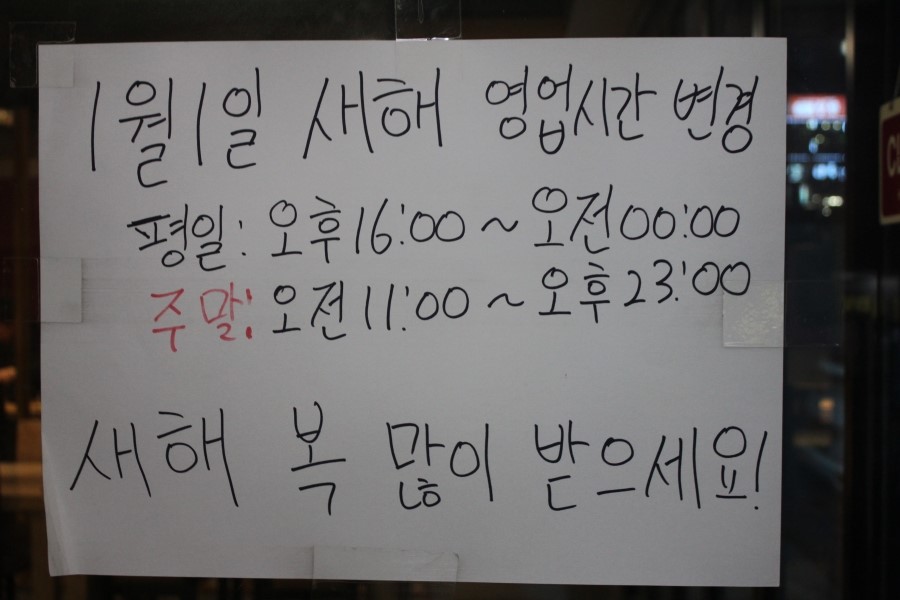 1월1일 새해 영업시간 변경
평일: 오후16:00 ~ 오전00:00
주말: 오전11:00 ~ 오후23:00
새해 복 많이 받으세요!